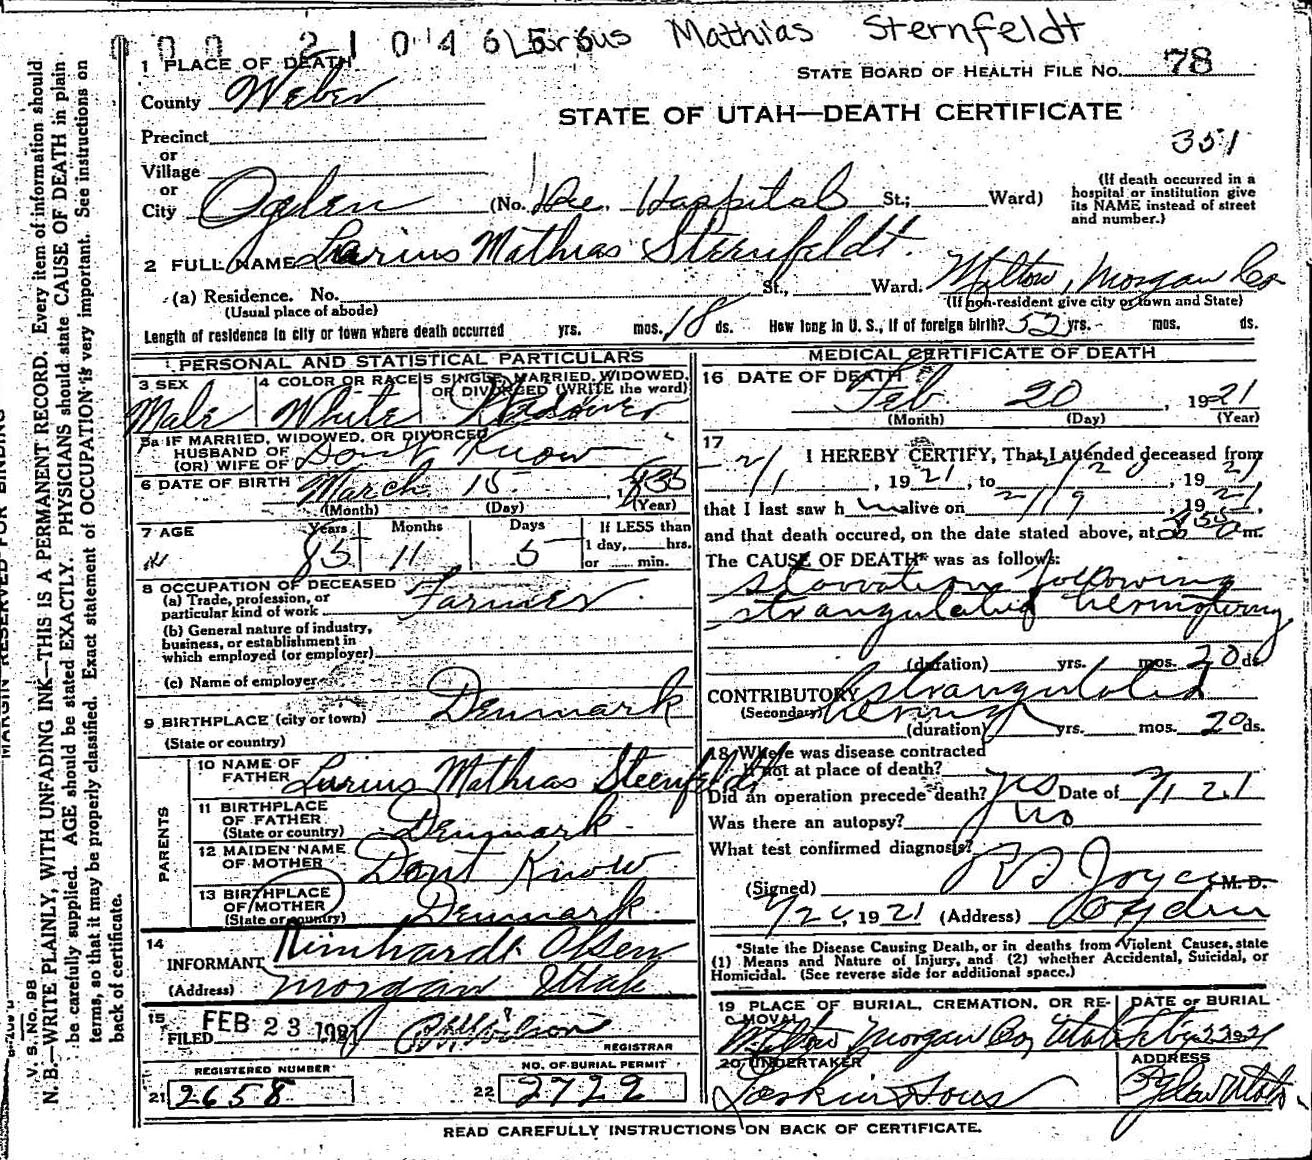 000 2104656 Larsus Mathias Sternfeldt
1 PLACE OF DEATH
STATE BOARD OF HEALTH FILE NO. 78
County Weber
STATE OF UTAH—DEATH CERTIFICATE
Precinct
351
or
Village
or
City Ogden (No. Dee Hospital St.; Ward)
(If death occurred in a
hospital or institution give
its NAME instead of street
and number.)
2 FULL NAME Larius Mathias Sternfeldt.
(a) Residence. No. St., Ward. Milton, Morgan Co
(Usual place of abode) (If non-resident give city or town and State)
Length of residence in city or town where death occurred yrs. mos. 18 ds. How long in U. S., if of foreign birth? 52 yrs. mos. ds.
PERSONAL AND STATISTICAL PARTICULARS
3 SEX 4 COLOR OR RACE 5 SINGLE, MARRIED, WIDOWED, OR DIVORCED (WRITE the word)
Male White Widower
5a IF MARRIED, WIDOWED, OR DIVORCED
HUSBAND OF
(OR) WIFE OF Dont Know
6 DATE OF BIRTH March 15 1835
(Month) (Day) (Year)
7 AGE Years Months Days If LESS than
85 11 5 1 day, hrs.
or min.
8 OCCUPATION OF DECEASED
(a) Trade, profession, or
particular kind of work Farmer
(b) General nature of industry,
business, or establishment in
which employed (or employer)
(c) Name of employer
9 BIRTHPLACE (city or town) Denmark
(State or country)
PARENTS
10 NAME OF
FATHER Larius Mathias Steenfeldt
11 BIRTHPLACE
OF FATHER
(State or country) Denmark.
12 MAIDEN NAME
OF MOTHER Dont Know
13 BIRTHPLACE
OF MOTHER
(State or country) Denmark.
14
INFORMANT Reinhardt Olsen
(Address) Morgan Utah
15
FILED FEB 23 1921
REGISTRAR
REGISTERED NUMBER NO. OF BURIAL PERMIT
21 2658 22 2722
MEDICAL CERTIFICATE OF DEATH
16 DATE OF DEATH
Feb 20, 1921
(Month) (Day) (Year)
17
I HEREBY CERTIFY, That I attended deceased from
2/1, 1921, to 2/20, 1921
that I last saw h im alive on 2/19, 1921,
and that death occured, on the date stated above, at m.
The CAUSE OF DEATH* was as follows:
starvation following
strangulated
(duration) yrs. mos. 20 ds.
CONTRIBUTORY strangulated
(Secondary)
(duration) yrs. mos. 20 ds.
18 Where was disease contracted
If not at place of death?
Did an operation precede death? yes Date of 2/1 21
Was there an autopsy? no
What test confirmed diagnosis?
(Signed) R S Joyce M. D.
1921 (Address) Ogden
*State the Disease Causing Death, or in deaths from Violent Causes, state
(1) Means and Nature of Injury, and (2) whether Accidental, Suicidal, or
Homicidal. (See reverse side for additional space.)
19 PLACE OF BURIAL, CREMATION, OR REMOVAL DATE OF BURIAL
Milton Morgan Co, Utah Feb 22 1921
20 UNDERTAKER ADDRESS
Larkin & Sons Ogden Utah
READ CAREFULLY INSTRUCTIONS ON BACK OF CERTIFICATE.
MARGIN RESERVED FOR BINDING
V. S. No. 98
N. B.—WRITE PLAINLY, WITH UNFADING INK—THIS IS A PERMANENT RECORD. Every item of information should
be carefully supplied. AGE should be stated EXACTLY. PHYSICIANS should state CAUSE OF DEATH in plain
terms, so that it may be properly classified. Exact statement of OCCUPATION is very important. See instructions on
back of certificate.